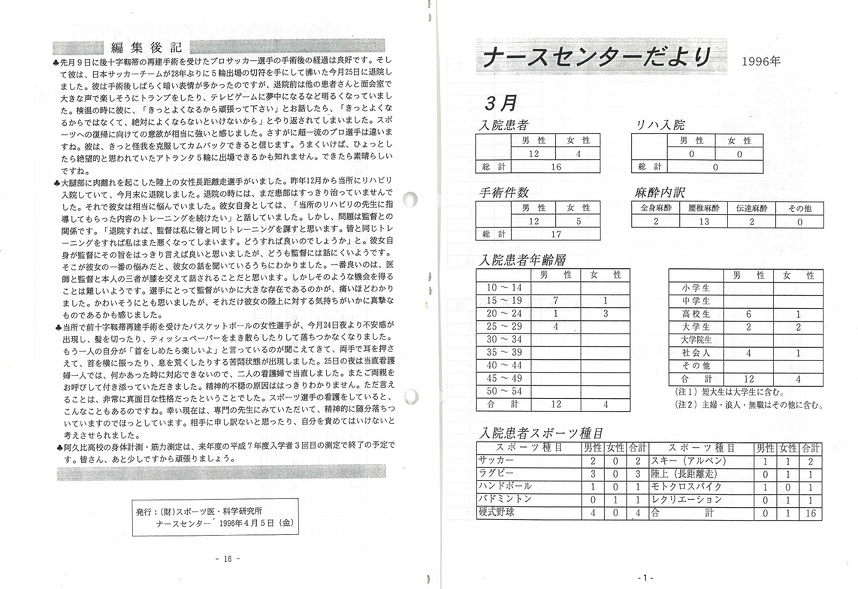 編集後記
♣先月9日に後十字靱帯の再建手術を受けたプロサッカー選手の手術後の経過は良好です。そし
て彼は、日本サッカーチームが28年ぶりに5輪出場の切符を手にして沸いた今月25日に退院し
ました。彼は手術後しばらく暗い表情が多かったのですが、退院前は他の患者さんと面会室で
大きな声で楽しそうにトランプをしたり、テレビゲームに夢中になるなど明るくなっていまし
た。検温の時に彼に、「きっとよくなるから頑張って下さい」とお話したら、「きっとよくな
るからではなくて、絶対によくならないといけないから」とやり返されてしまいました。スポ
ーツへの復帰に向けての意欲が相当に強いと感じました。さすがに超一流のプロ選手は違いま
すね。彼は、きっと怪我を克服してカムバックできると信じます。うまくいけば、ひょっとし
たら絶望的と思われていたアトランタ5輪に出場できるかも知れません。できたら素晴らしい
ですね。
♣大腿部に肉離れを起こした陸上の女性長距離走選手がいました。昨年12月から当所にリハビリ
入院していて、今月末に退院しました。退院の時には、まだ患部はすっきり治っていませんで
した。それで彼女は相当に悩んでいました。彼女自身としては、「当所のリハビリの先生に指
導してもらった内容のトレーニングを続けたい」と話していました。しかし、問題は監督との
関係です。「退院すれば、監督は私に皆と同じトレーニングを課すと思います。皆と同じトレ
ーニングをすれば私はまた悪くなってしまいます。どうすれば良いのでしょうか」と。彼女自
身が監督にその旨をはっきり言えば良いと思いましたが、どうも監督には話にくいようです。
そこが彼女の一番の悩みだと、彼女の話を聞いているうちにわかりました。一番良いのは、医
師と監督と本人の三者が膝を交えて話されることだと思います。しかしそのような機会を得る
ことは難しいようです。選手にとって監督がいかに大きな存在であるのかが、痛いほどわかり
ました。かわいそうにとも思いましたが、それだけ彼女の陸上に対する気持ちがいかに真摯な
ものであるかも感じました。
♣当所で前十字靱帯再建手術を受けたバスケットボールの女性選手が、今月24日夜より不安感が
出現し、髪を切ったり、ティッシュペーパーをまき散らしたりして落ちつかなくなりました。
もう一人の自分が「首をしめたら楽しいよ」と言っているのが聞こえてきて、両手で耳を押さ
えて、首を横に振ったり、息を荒くしたりする苦悶状態が出現しました。25日の夜は当直看護
婦一人では、何かあった時に対応できないので、二人の看護婦で当直しました。またご両親を
お呼びして付き添っていただきました。精神的不穏の原因ははっきりわかりません。ただ言え
ることは、非常に真面目な性格だったということでした。スポーツ選手の看護をしていると、
こんなこともあるのですね。幸い現在は、専門の先生にみていただいて、精神的に随分落ちつ
いていますのでほっとしています。相手に申し訳ないと思ったり、自分を責めてはいけないと
考えさせられました。
♣阿久比高校の身体計測・筋力測定は、来年度の平成7年度入学者3回目の測定で終了の予定で
す。皆さん、あと少しですから頑張りましょう。
発行:(財)スポーツ医・科学研究所
ナースセンター 1996年4月5日(金)
- 16 -
ナースセンターだより 1996年
3月
入院患者 リハ入院
男性 女性 男性 女性
12 4 0 0
総計 16 総計 0
手術件数 麻酔内訳
男性 女性 全身麻酔 腰椎麻酔 伝達麻酔 その他
12 5 2 13 2 0
総計 17
入院患者年齢層
男性 女性 男性 女性
10~14 小学生
15~19 7 1 中学生
20~24 1 3 高校生 6 1
25~29 4 大学生 2 2
30~34 大学院生
35~39 社会人 4 1
40~44 その他
45~49 合計 12 4
50~54 (注1)短大生は大学生に含む。
合計 12 4 (注2)主婦・浪人・無職はその他に含む。
入院患者スポーツ種目
スポーツ種目 男性 女性 合計 スポーツ種目 男性 女性 合計
サッカー 2 0 2 スキー(アルペン) 1 1 2
ラグビー 3 0 3 陸上(長距離走) 0 1 1
ハンドボール 1 0 1 モトクロスバイク 1 0 1
バドミントン 0 1 1 レクリエーション 0 1 1
硬式野球 4 0 4 合計 0 1 16
- 1 -